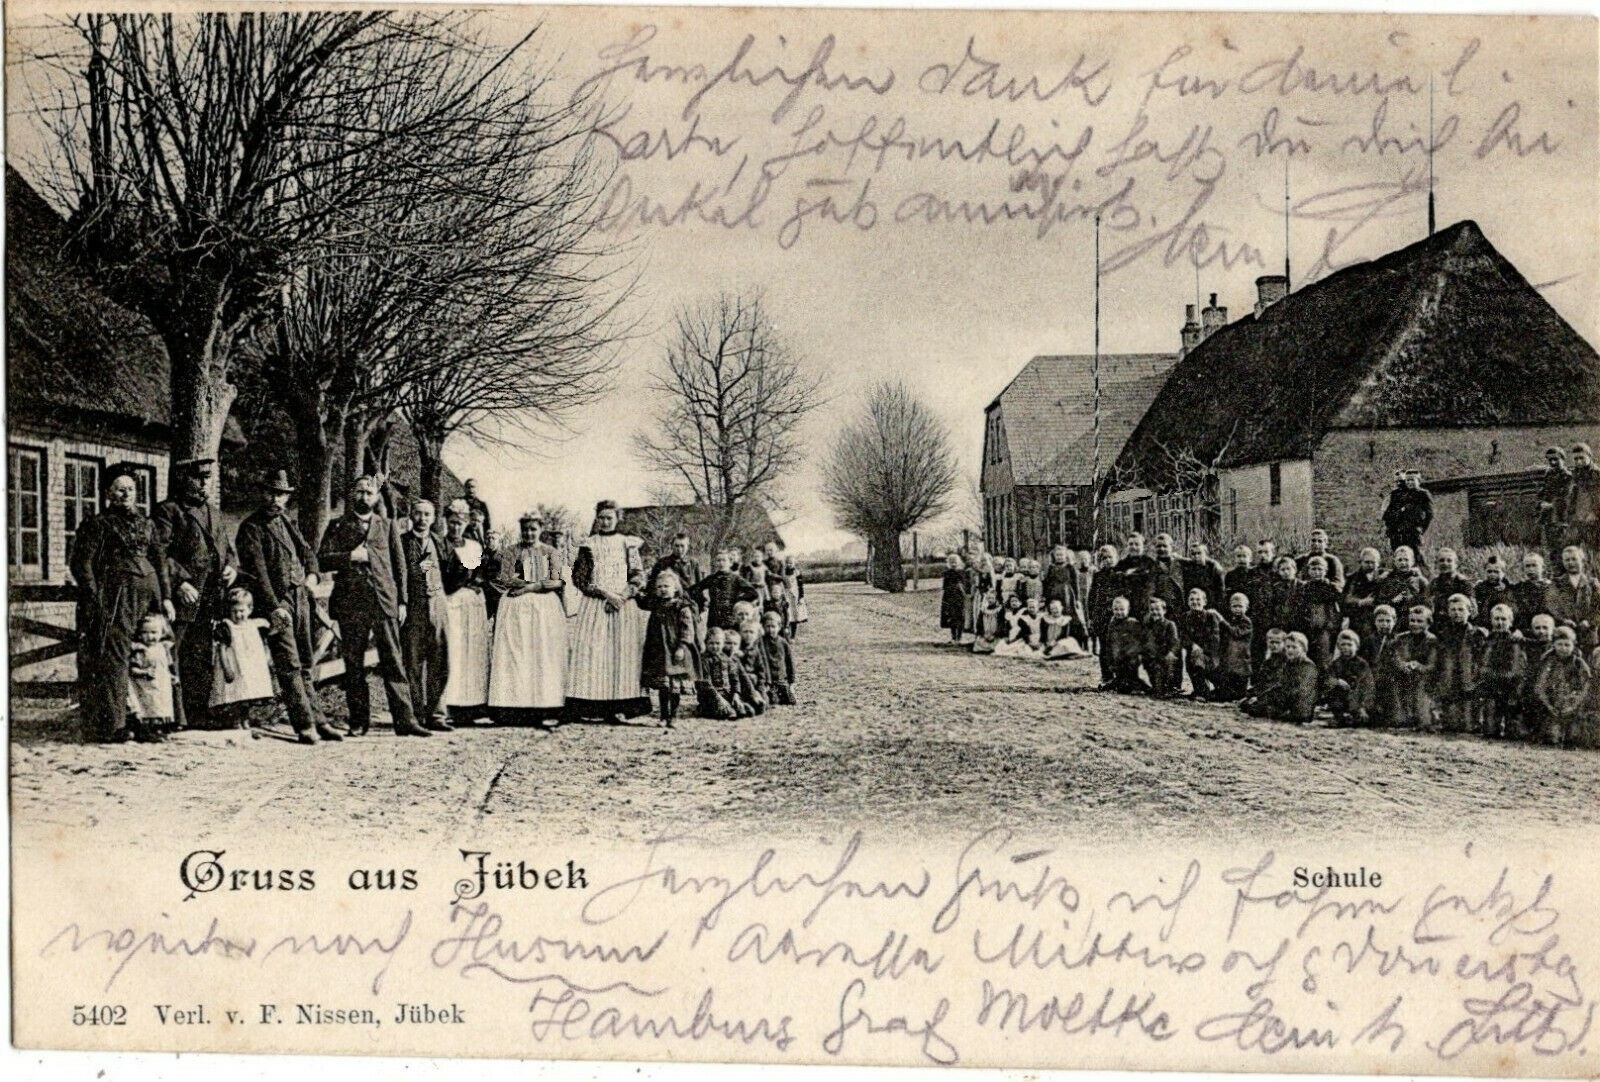 Herzlichen Dank für deine l.
Karte, hoffentlich hast du dich bei
Onkel gut amüsirt.
Dein
Gruss aus Jübek
Schule
Herzlichen Gruß, ich fahre jetzt
weiter nach Husum. Adresse Mittwoch & Donnerstag
Hamburg Graf Moltke Dein tr.
5402 Verl. v. F. Nissen, Jübek